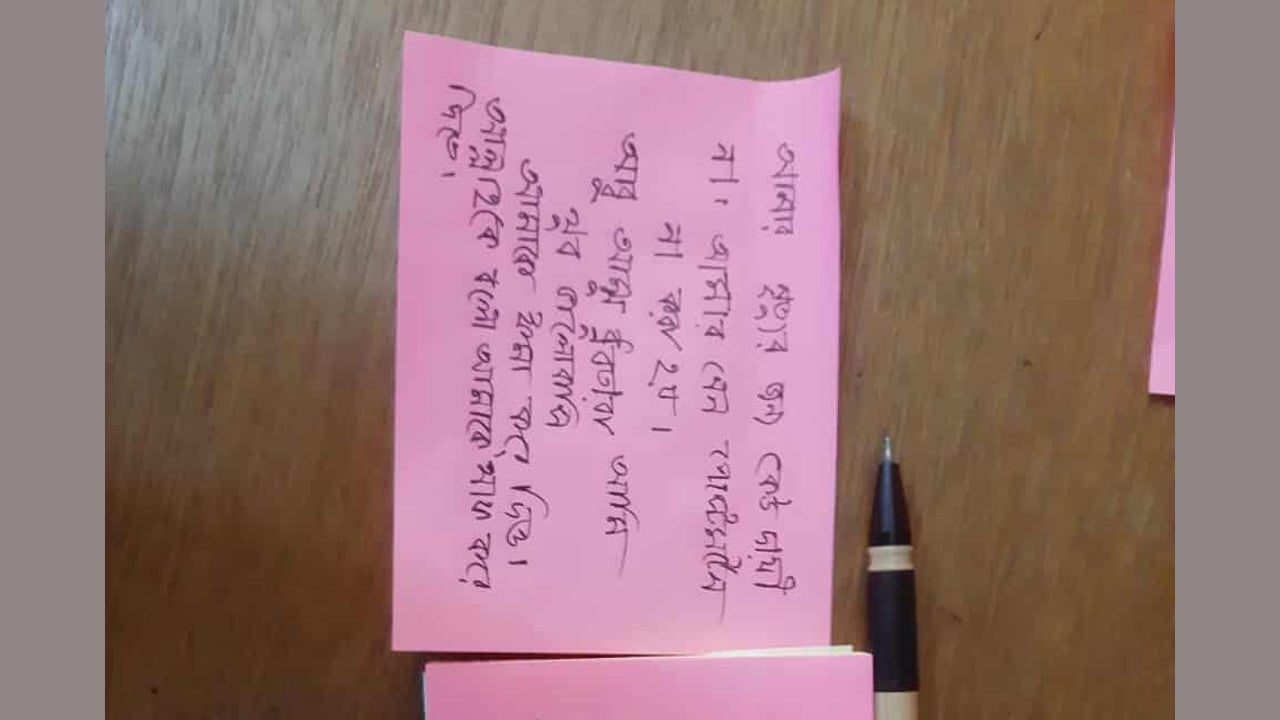 আমার মৃত্যুর জন্য কেউ দায়ী
না। আমার যেন পোস্টমর্টেম
না করা হয়।
আব্বু আম্মু আমি
খুব ভালোবাসি
আমাকে ক্ষমা করে দিও।
আল্লাহকে বলো আমাকে মাফ করে
দিতে।